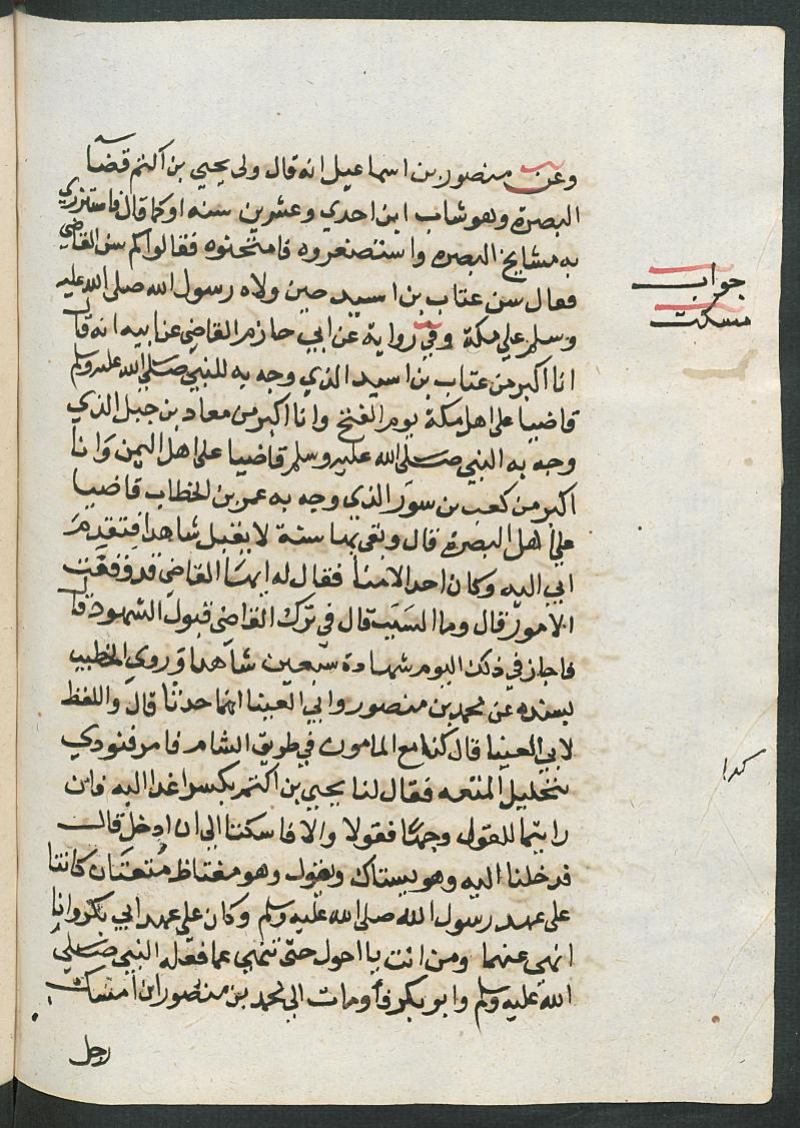 وعن منصور بن اسماعيل انه قال ولى يحيي بن اكثم قضآ
البصرة وهو شاب ابن احدي وعشرين سنه او كما قال فاستزري
به مشايخ البصره واستصغروه فامتحنوه فقالوا كم سن القاضي
فقال سن عتاب بن اسيد حين ولاه رسول الله صلى الله عليه
وسلم علي مكة وفي رواية عن ابي حازم القاضي عن ابيه انه قال
انا اكبر من عتاب بن اسيد الذي وجه به للنبي صلى الله عليه وسلم
قاضيا على اهل مكة يوم الفتح وانا اكبر من معاد بن جبل الذي
وجه به النبي صلى الله عليه وسلم قاضيا على اهل اليمن وانا
اكبر من كعب بن سور الذي وجه به عمر بن الخطاب قاضيا
علي اهل البصرة قال وبقى بها سنة لا يقبل شاهدا فتقدم
ابي اليه وكان احد الامنا فقال له ايها القاضي قد وقفت
الامور قال وما السبب قال في ترك القاضي قبول الشهود قال
فاجاز في ذلك اليوم شهادة سبعين شاهدا وروي الخطيب
بسنده عن محمد بن منصور وابي العينا انهما حدثا قال واللفظ
لابي العينا قال كنا مع المامون في طريق الشام فامر فنودي
بتحليل المتعه فقال لنا يحيي بن اكثم بكسرا غدا اليه فان
رايتما للقول وجها فقولا والا فاسكتا الى ان ادخل قال
فدخلنا اليه وهو يستاك ويقول وهو مغتاظ متعتان كانتا
على عهد رسول الله صلى الله عليه وسلم وكان علي عهد ابي بكر وانا
انهى عنهما ومن انت يا احول حتى تنهي عما فعله النبي صلى
الله عليه وسلم وابو بكر فأومات الي محمد بن منصور ان امسك
رجل
جواب
مسكت
كدا